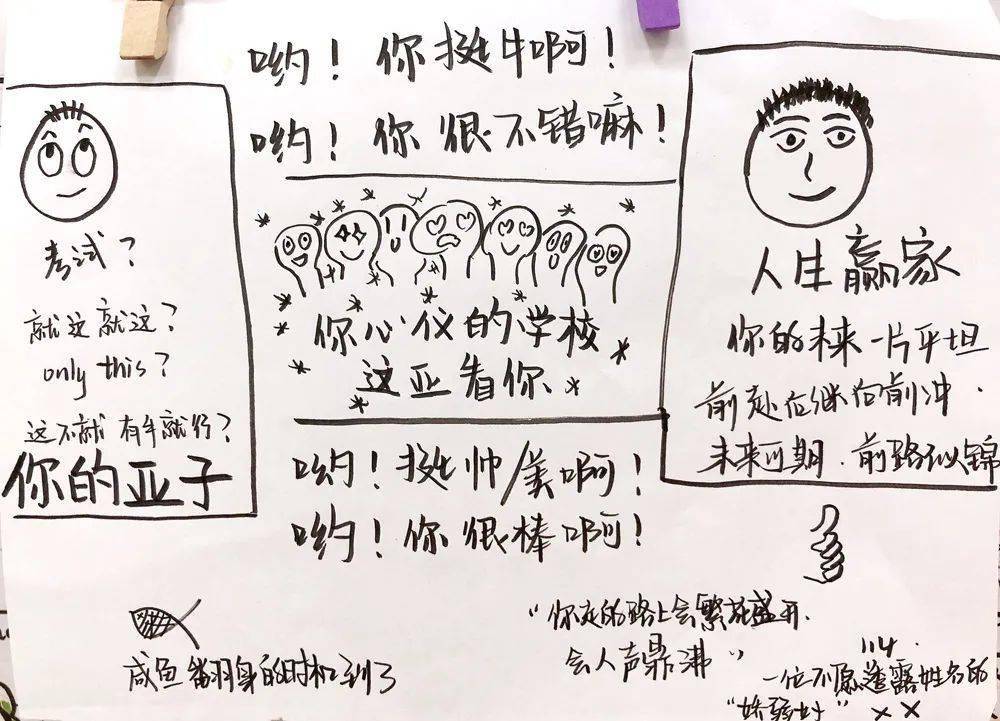 哟！你挺牛啊！
哟！你很不错嘛！
考试？
就这就这？
only this？
这不就有手就行？
你的亚子
你心仪的学校
这亚看你
人生赢家
你的未来一片平坦
前赴后继向前冲．
未来可期．前路似锦
哟！挺帅/美啊！
哟！你很棒啊！
咸鱼翻身的时机到了
“你走的路上会繁花盛开．
会人声鼎沸”
一位不愿透露姓名的